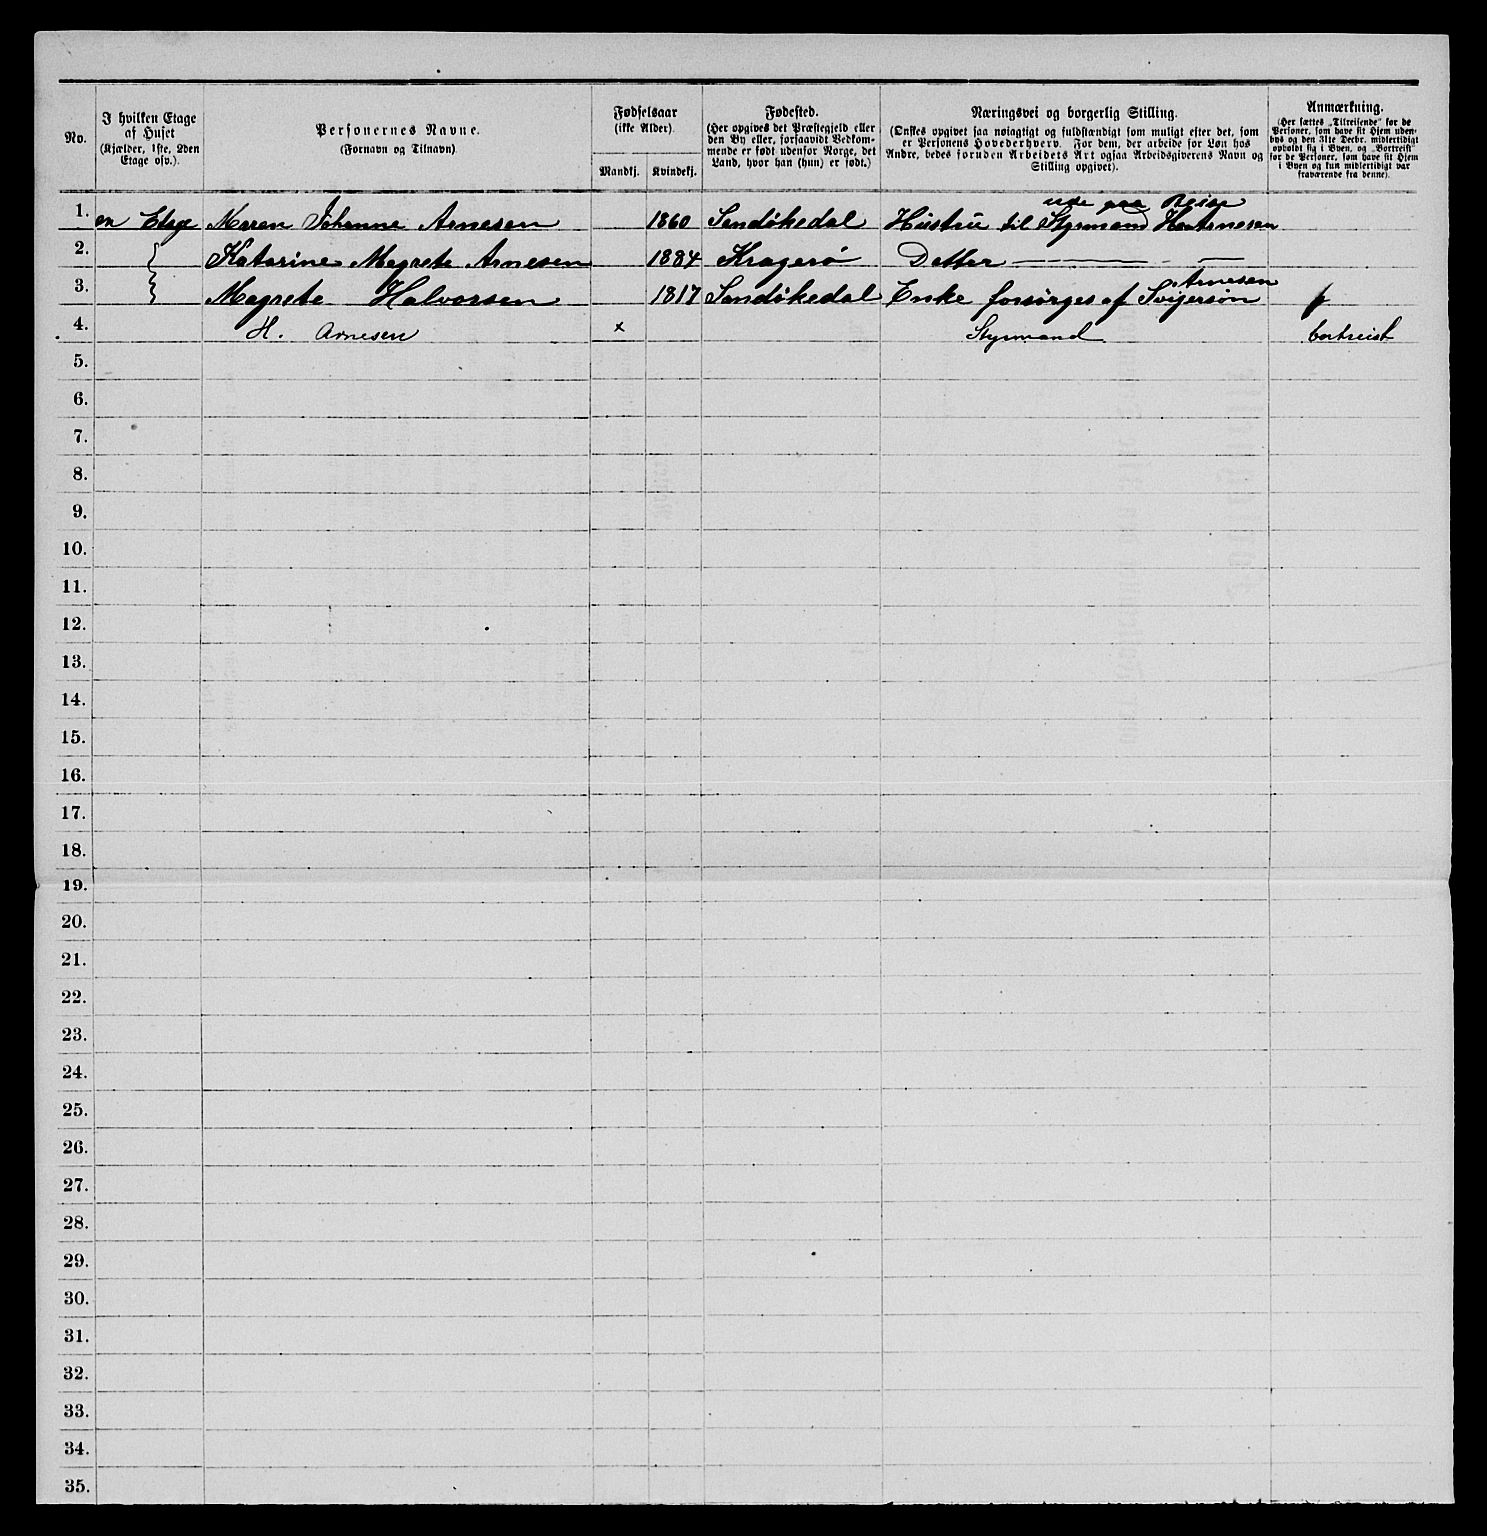 No.
I hvilken Etage
af Huset
(Kjælder, 1ste, 2den
Etage osv.).
Personernes Navne.
(Fornavn og Tilnavn).
Fødselsaar
(ikke Alder).
Mandkj.
Kvindekj.
Fødested.
(Her opgives det Præstegjeld eller
den By eller, forsaavidt Vedkom-
mende er født udenfor Norge, det
Land, hvor han (hun) er født.)
Næringsvei og borgerlig Stilling.
(Ønskes opgivet saa nøiagtigt og fuldstændigt som muligt efter det, som
er Personens Hovederhverv. For dem, der arbeide for Løn hos
Andre, bedes foruden Arbeidets Art ogsaa Arbeidsgiverens Navn og
Stilling opgivet).
Anmærkning.
(Her sættes „Tilreisende" for de
Personer, som have sit Hjem uden-
bys og den 31te Decbr. midlertidigt
opholdt sig i Byen, og „Bortreist"
for de Personer, som have sit Hjem
i Byen og kun midlertidigt var
fraværende fra denne).
ude paa Reise
1. en Etage Maren Johanne Arnesen 1860 Sandøkedal Hustru til Styrmand Arnesen
2. Katarine Magrete Arnesen 1884 Kragerø Datter
Arnesen
3. Magrete Halvorsen 1817 Sandøkedal Enke forsørges af Svigersøn
4. H. Arnesen x Styrmand bortreist
5.
6.
7.
8.
9.
10.
11.
12.
13.
14.
15.
16.
17.
18.
19.
20.
21.
22.
23.
24.
25.
26.
27.
28.
29.
30.
31.
32.
33.
34.
35.